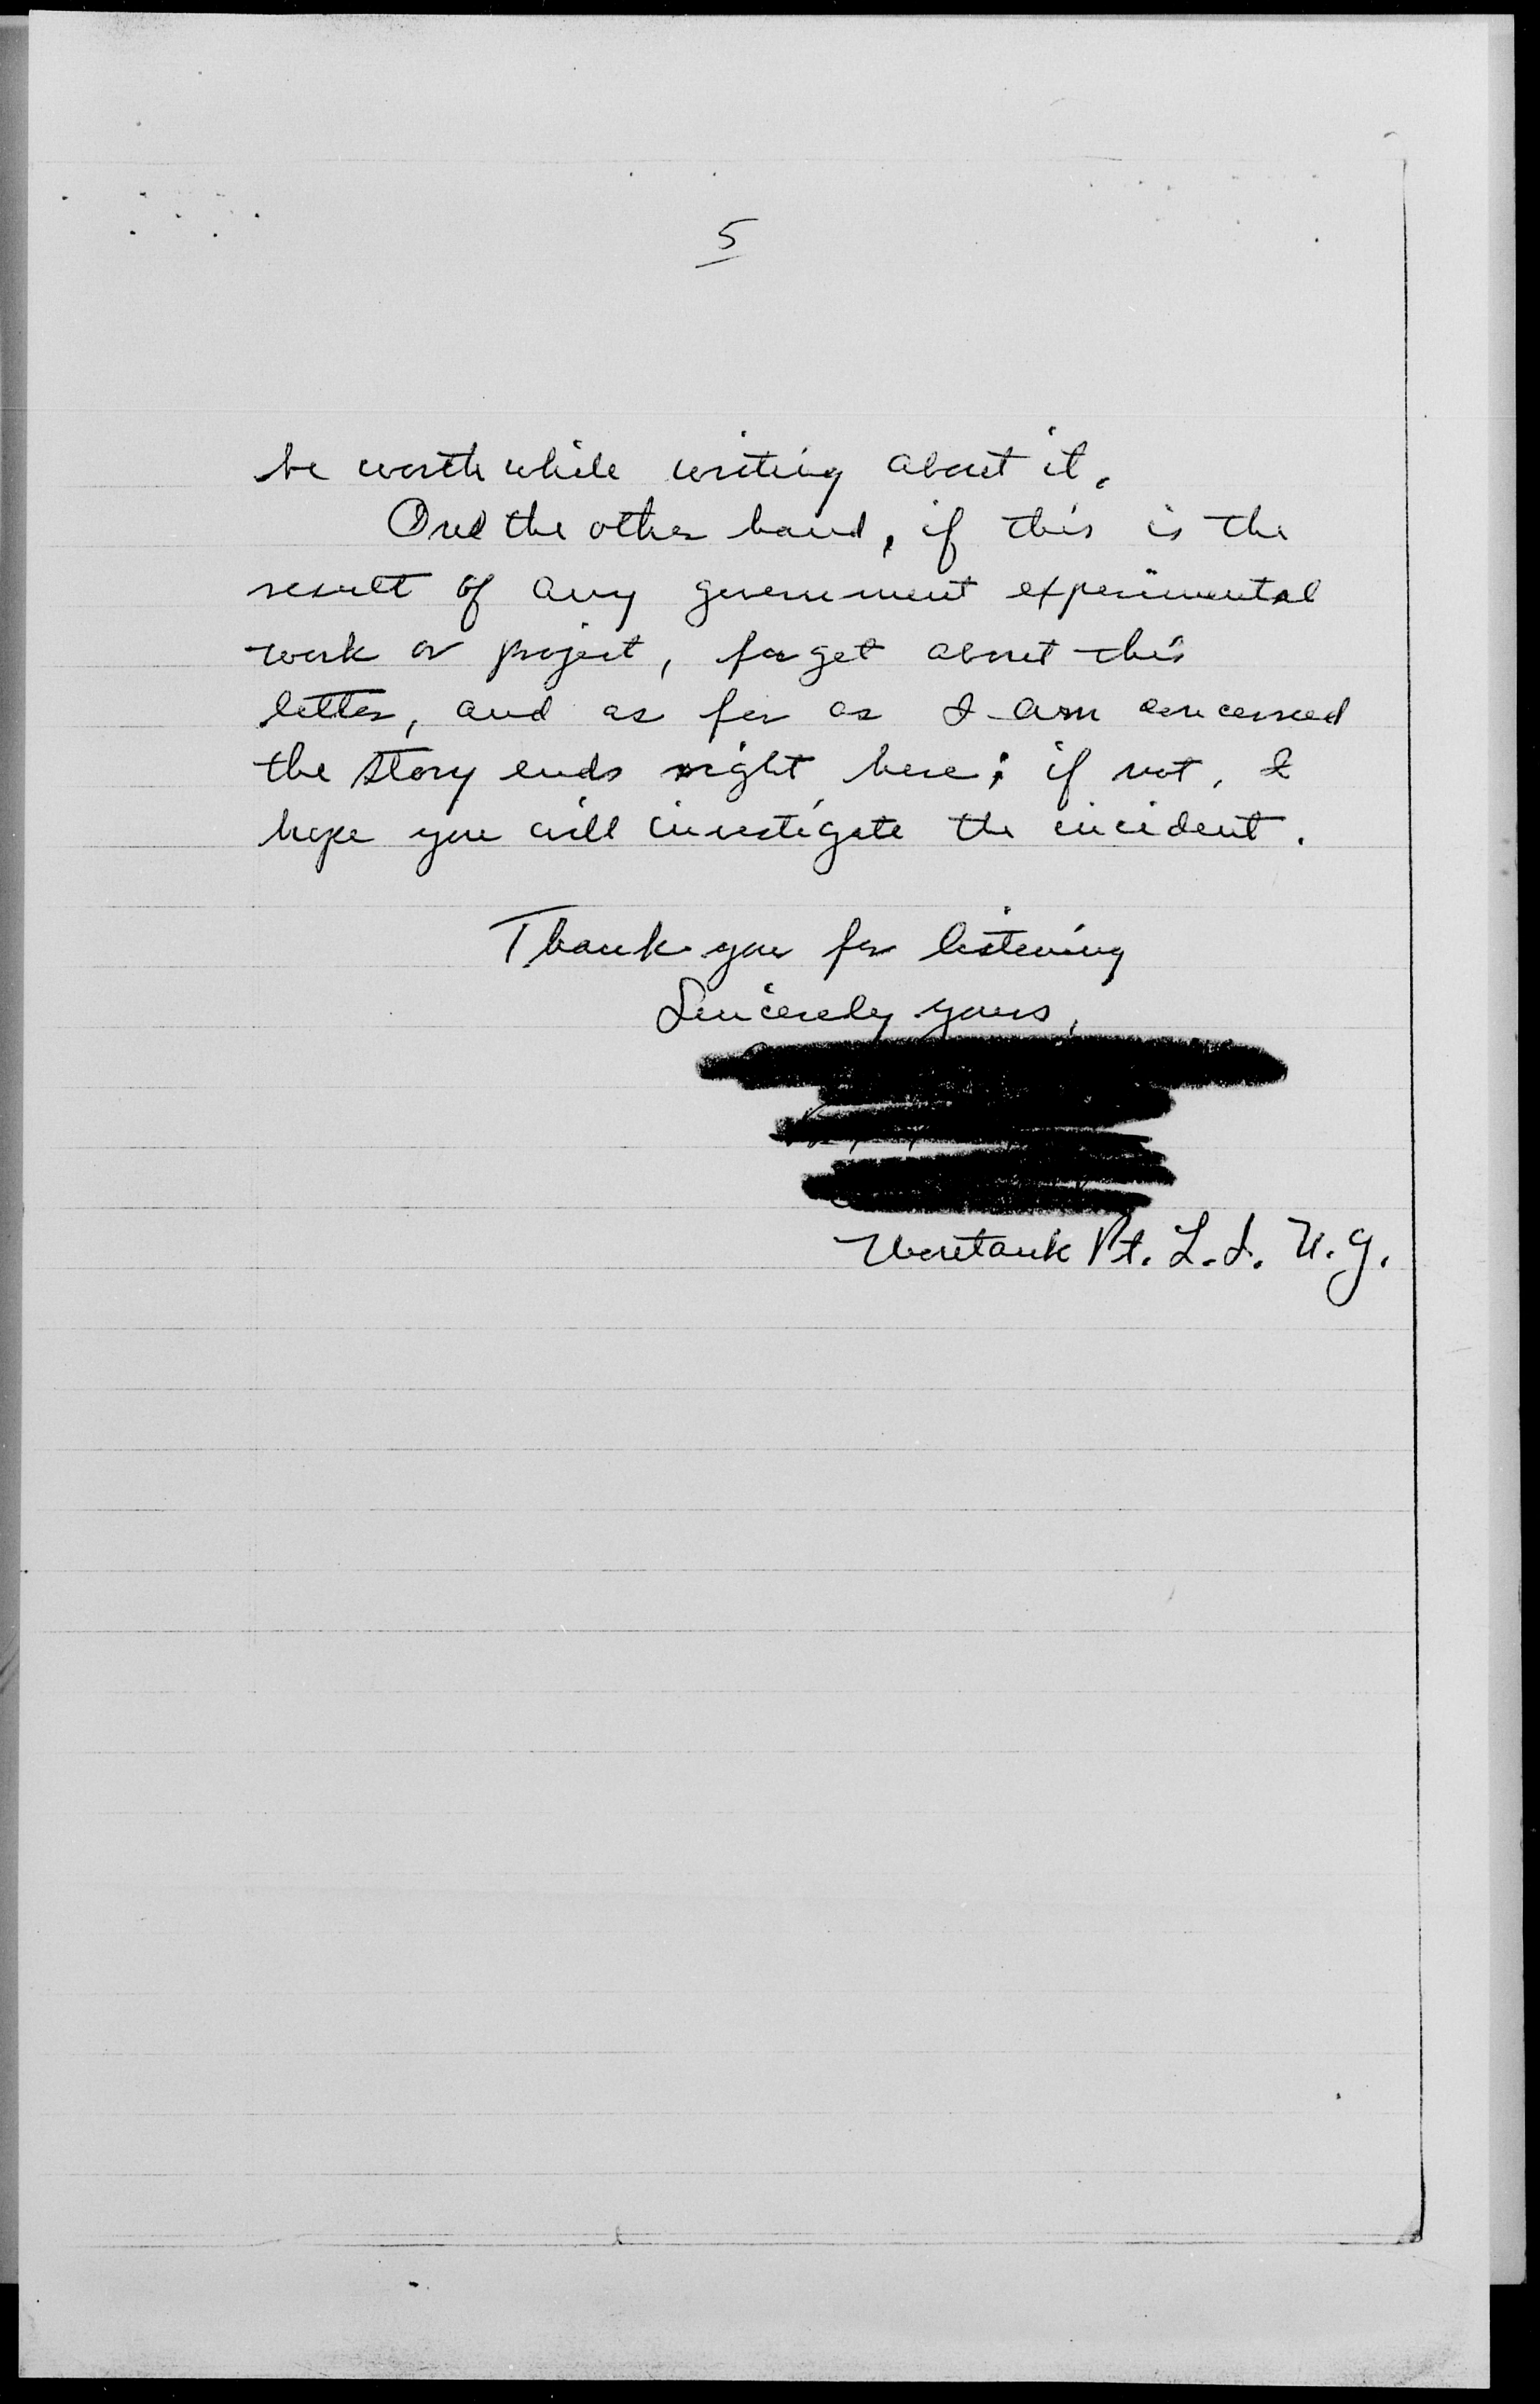 5
be worth while writing about it.
One the other hand, if this is the
result of any government experimental
work or project, forget about this
letter, and as far as I am concerned
the story ends right here; if not, I
hope you will investigate the incident.
Thank you for listening
Sincerely yours,
Montauk Pt. L.I. N.Y.